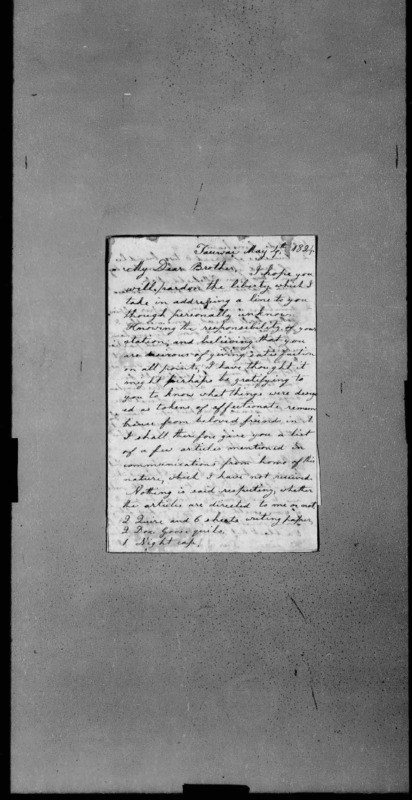 Tauwai May 4th 1824
My Dear Brother, I hope you
will pardon the liberty which I
take in addressing a line to you
though personally unknown.
Knowing the responsibility of your
station, and believing that you
are desirous of giving satisfaction
on all points, I have thought it
might perhaps be gratifying to
you to know what things were design
ed as tokens of affectionate remem
brance from beloved friends in
I shall therefore give you a list
of a few articles mentioned in
communications from home of this
nature, which I have not received.
Nothing is said respecting, whether
the articles are directed to me or not
2 Quire and 6 sheets writing paper,
2 Doz. Goose quils,
1 Night cap,